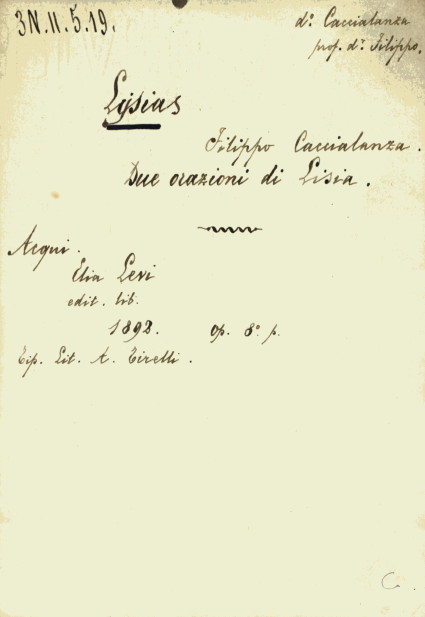 3N.II.5.19.
d.º Caccialanza
prof. d.r Filippo.
Lysias
Filippo Caccialanza.
Due orazioni di Lisia.
Acqui.
Elia Levi
edit. lib.
1892. op. 8º p.
Tip. Lit. A. Tirelli.
C.